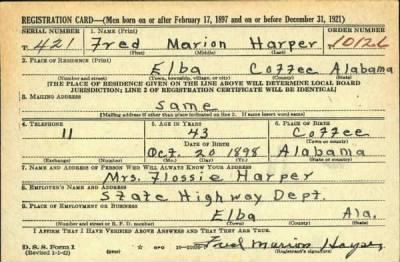 REGISTRATION CARD—(Men born on or after February 17, 1897 and on or before December 31, 1921)
SERIAL NUMBER 1. NAME (Print) ORDER NUMBER
T 421 Fred Marion Harper
(First) (Middle) (Last)
2. PLACE OF RESIDENCE (Print)
Elba Coffee Alabama
(Number and street) (Town, township, village, or city) (County) (State)
[THE PLACE OF RESIDENCE GIVEN ON THE LINE ABOVE WILL DETERMINE LOCAL BOARD
JURISDICTION; LINE 2 OF REGISTRATION CERTIFICATE WILL BE IDENTICAL]
3. MAILING ADDRESS
Same
[Mailing address if other than place indicated on line 2. If same insert word same]
4. TELEPHONE 5. AGE IN YEARS 6. PLACE OF BIRTH
11 43 Coffee
DATE OF BIRTH (Town or county)
Oct. 20 1898 Alabama
(Exchange) (Number) (Mo.) (Day) (Yr.) (State or country)
7. NAME AND ADDRESS OF PERSON WHO WILL ALWAYS KNOW YOUR ADDRESS
Mrs. Flossie Harper
8. EMPLOYER'S NAME AND ADDRESS
State Highway Dept.
9. PLACE OF EMPLOYMENT OR BUSINESS
Elba Ala.
(Number and street or R. F. D. number) (Town) (County) (State)
I AFFIRM THAT I HAVE VERIFIED ABOVE ANSWERS AND THAT THEY ARE TRUE.
D. S. S. Form 1
(Revised 1-1-42) Fred Marion Harper